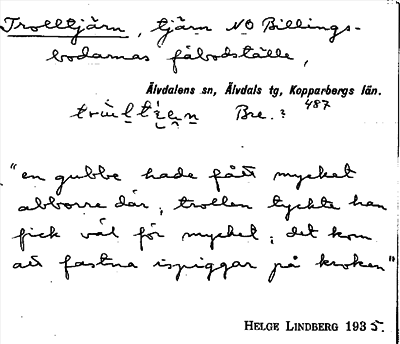 Trolltjärn, tjärn NO Billings-
bodarnas fäbodställe,
Älvdalens sn, Älvdals tg, Kopparbergs län.
Bre.? 487
"en gubbe hade fått mycket
abborre där, trollen tyckte han
fick väl för mycket, det kom
att fastna ispiggar på kroken"
HELGE LINDBERG 1935.